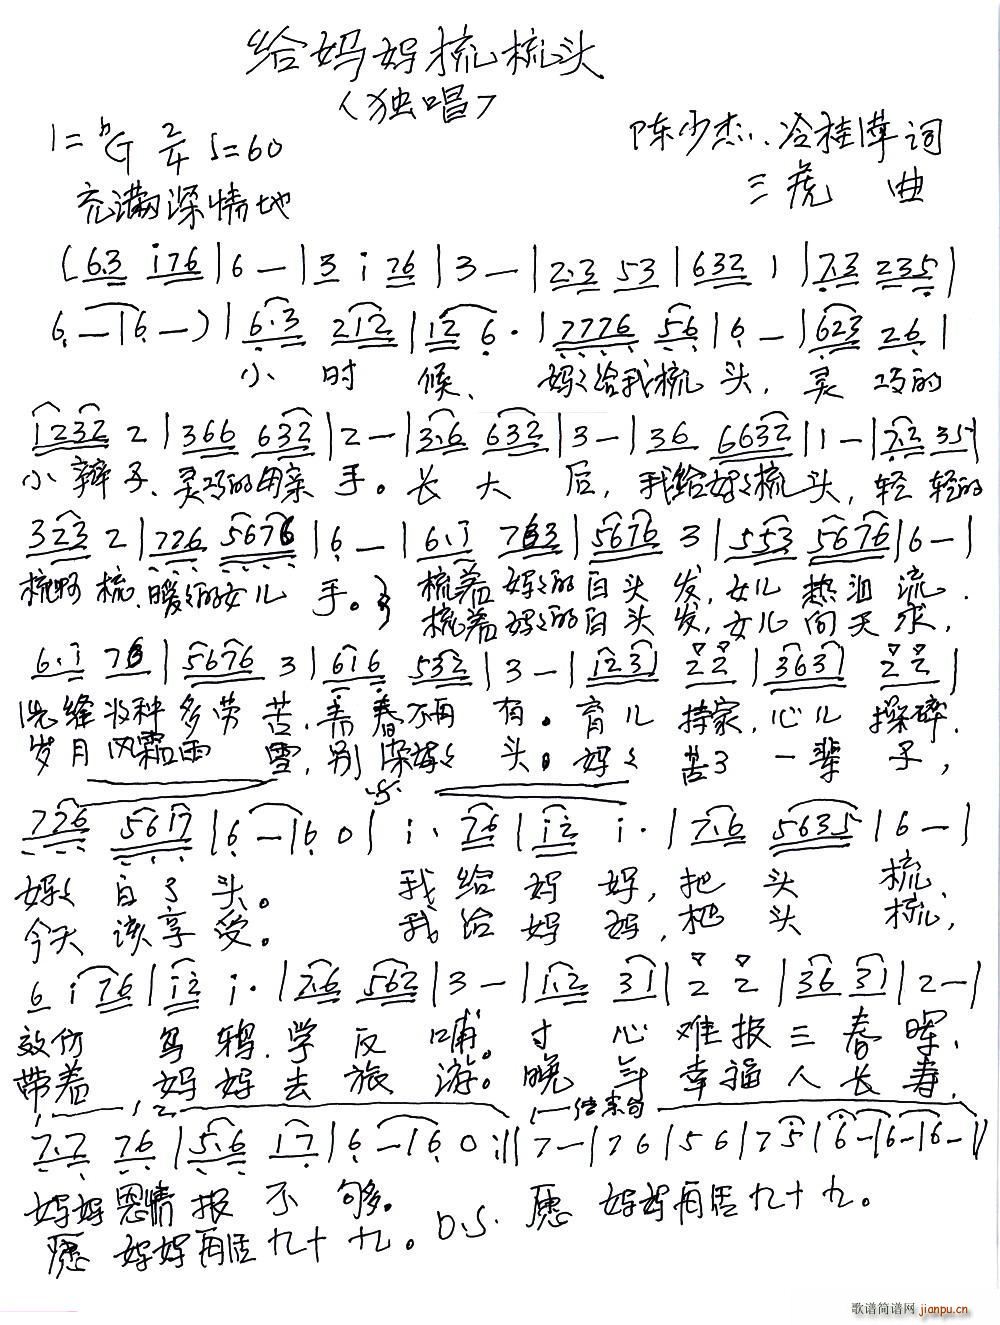 给妈妈梳梳头
(独唱)
1=bG 2/4 ♩=60
陈少杰、冷桂萍 词
充满深情地
三虎 曲
(6.3 i76|6 —|3 i 76|3 —|2.3 53|632 1|7.3 235|
6 —|6 —)|6.3 212|12 6.|7776 56|6 —|623 26|
小 时 候、 妈妈给我梳 头, 灵 巧的
1232 2|366 632|2 —|3.6 632|3 —|36 6632|1 —|7.2 35|
小 辫 子、灵巧的母亲 手。长 大 后, 我给妈妈梳 头, 轻 轻的
323 2|726 5676|6 —|6.i 763|5676 3|553 5676|6 —|
梳啊 梳、暖暖的女儿 手。 梳着 妈妈的白头 发,女儿 热泪 流.
梳着 妈妈的白头 发,女儿 问天 求,
6.i 76|5676 3|616 532|3 —|1231 22|3631 22|
洗缝收种 多劳 苦,青春不再 有。育儿 持家,心儿 操碎.
岁月风霜雨 雪,别染妈妈 头。妈妈 苦了 一辈 子,
726 5617|6 —|6 0|i. 76|i2 i.|7.6 5635|6 —|
妈妈 白了 头。 我 给 妈 妈,把 头 梳、
今天 该享 受。 我 给 妈 妈,把 头 梳,
6 i 76|i2 i.|76 562|3 —|1.2 31|2 2|36 31|2 —|
效仿 乌 鸦.学 反 哺。寸 心 难报三春 晖、
带着 妈 妈 去 旅 游。晚 年 幸福人长 寿,
1 2 结束句
7.7 76|5.6 17|6 —|6 0:||7 —|76|56|75|6 —|6 —|6 —||
妈妈恩情 报 不 够。
D.S. 愿 妈妈再活九十九。
愿 妈妈再活九十 九。
歌谱简谱网 jianpu.cn